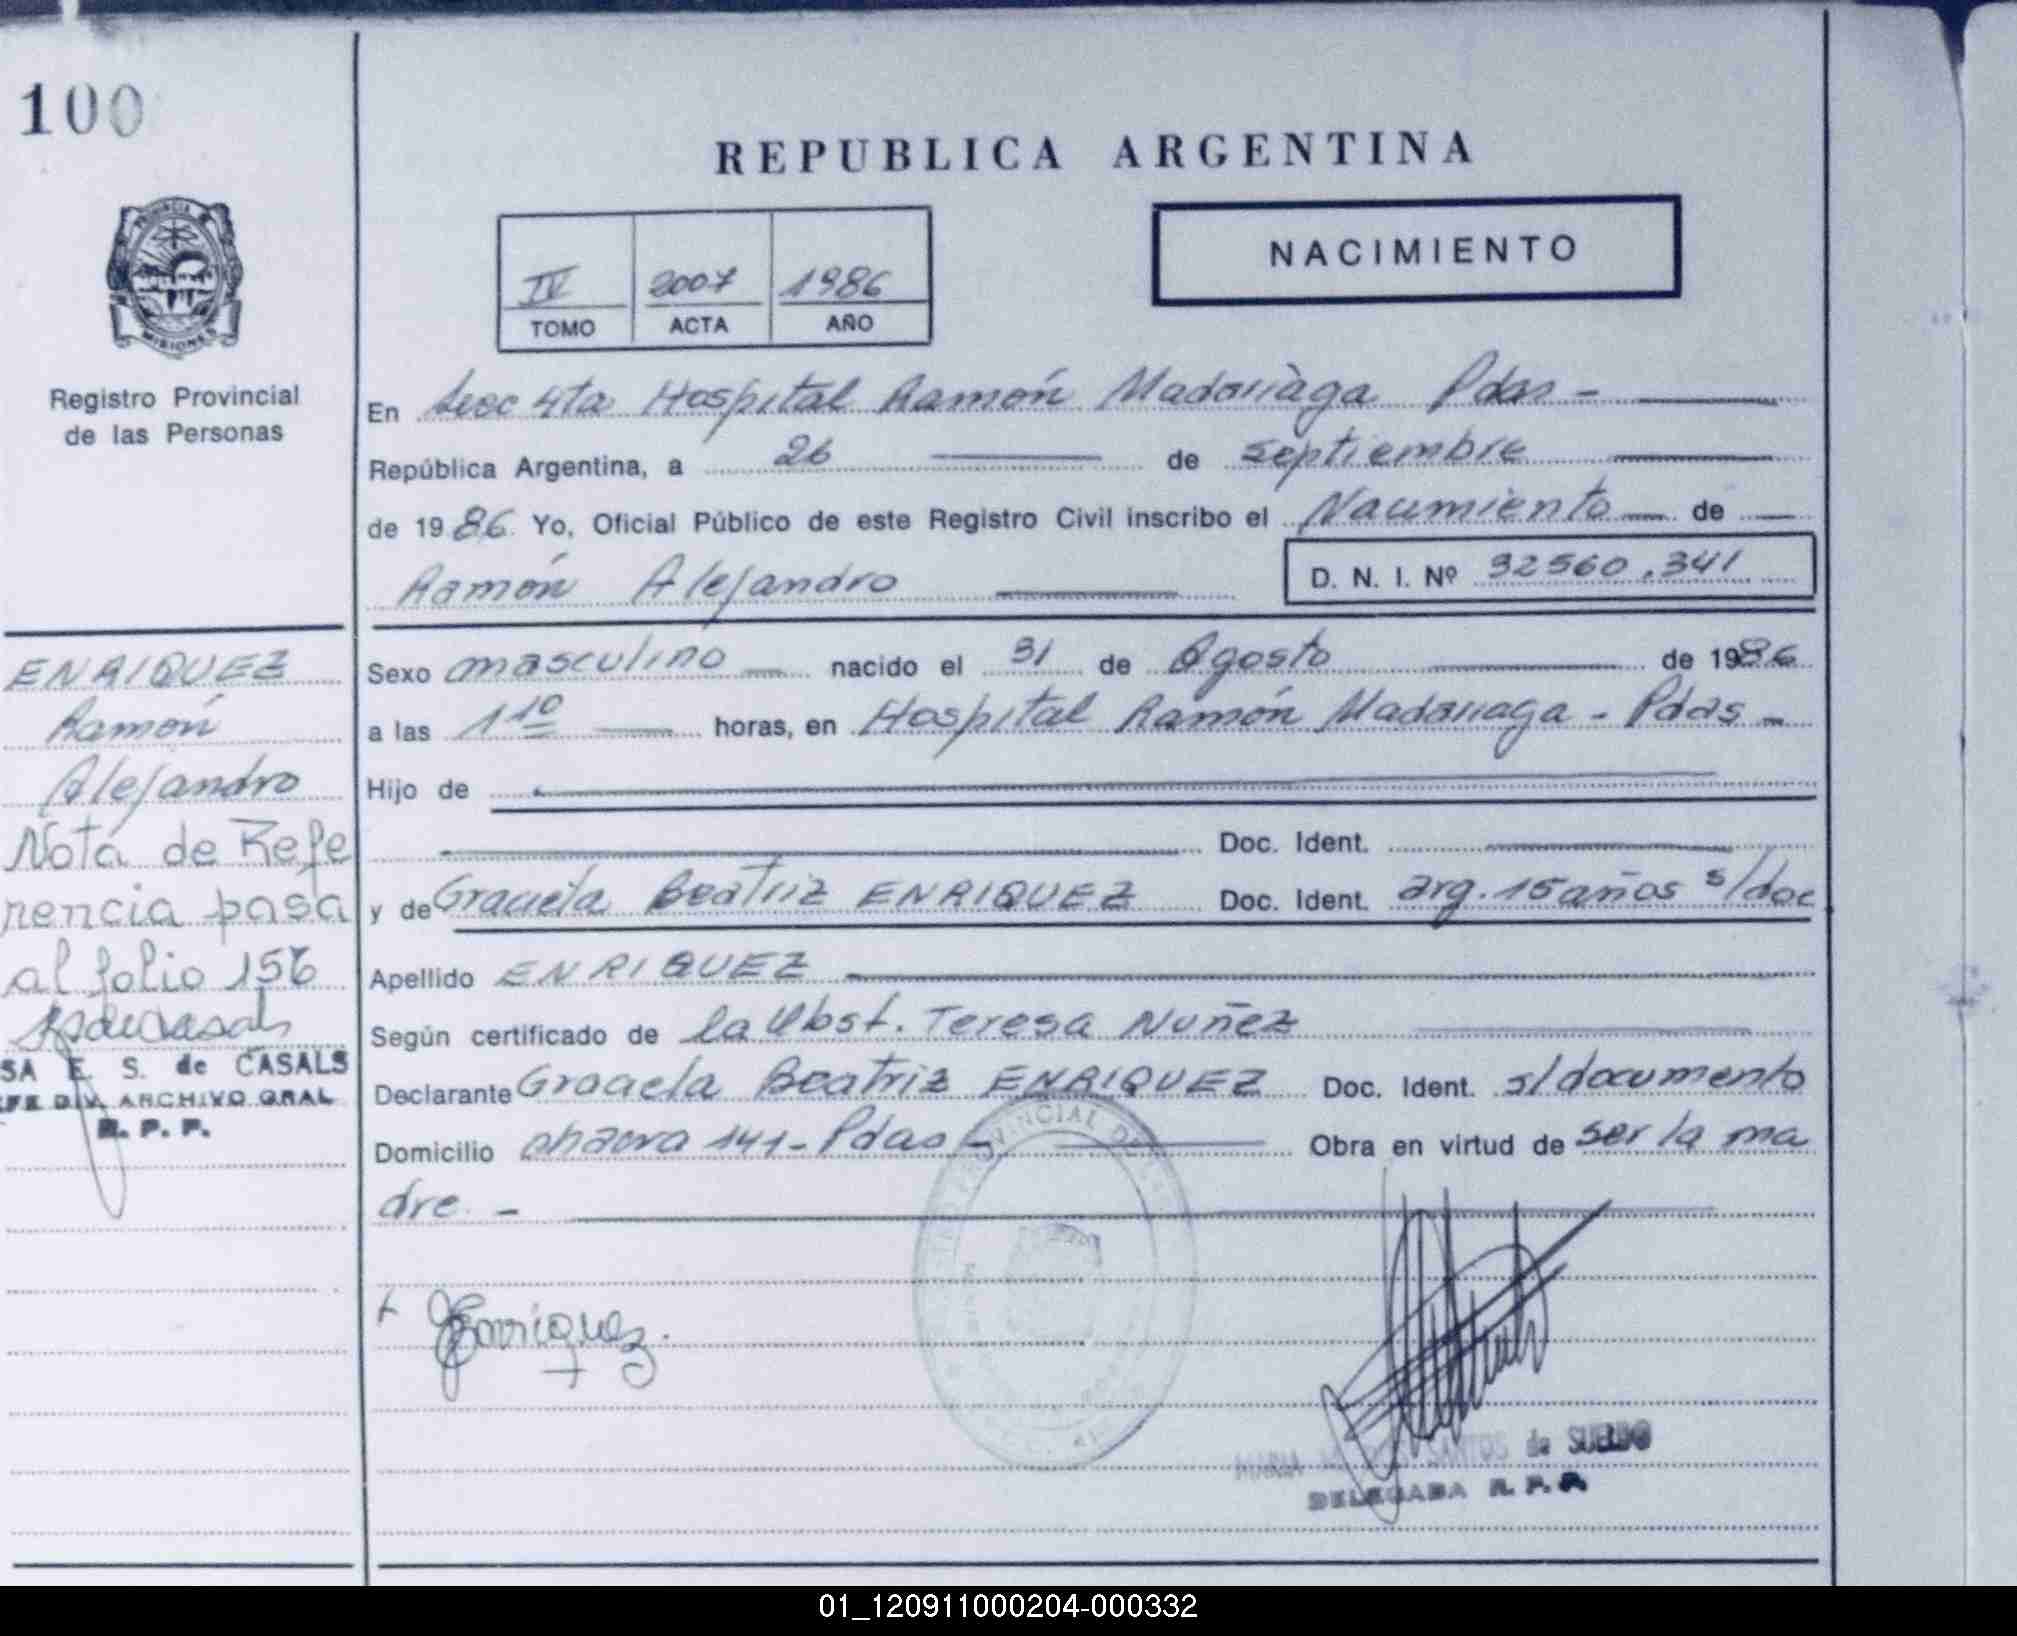 100
REPUBLICA ARGENTINA
NACIMIENTO
IV 2007 1986
TOMO ACTA AÑO
PROVINCIA DE
MISIONES
Registro Provincial
de las Personas
En Secc 4ta Hospital Ramón Madariàga Pdas -
República Argentina, a 26 de septiembre
de 1986. Yo, Oficial Público de este Registro Civil inscribo el Nacimiento de
Ramón Alejandro
D. N. I. Nº 32560.341
ENRIQUEZ
Ramón
Alejandro
Nota de Refe
rencia pasa
al folio 156
SA E. S. de CASALS
EFE DIV. ARCHIVO GRAL
R. P. P.
Sexo masculino nacido el 31 de Agosto de 1986
a las 11º horas, en Hospital Ramón Madariaga - Pdas -
Hijo de
Doc. Ident.
y de Graciela Beatriz ENRIQUEZ Doc. Ident. arg. 15 años s/doc
Apellido ENRIQUEZ
Según certificado de la Obst. Teresa Nuñez
Declarante Graciela Beatriz ENRIQUEZ Doc. Ident. s/documento
Domicilio chacra 141 - Pdas - Obra en virtud de ser la ma
dre. -
Enriquez
MARIA SANTOS de SUELDO
DELEGADA R. P. P.
01_120911000204-000332